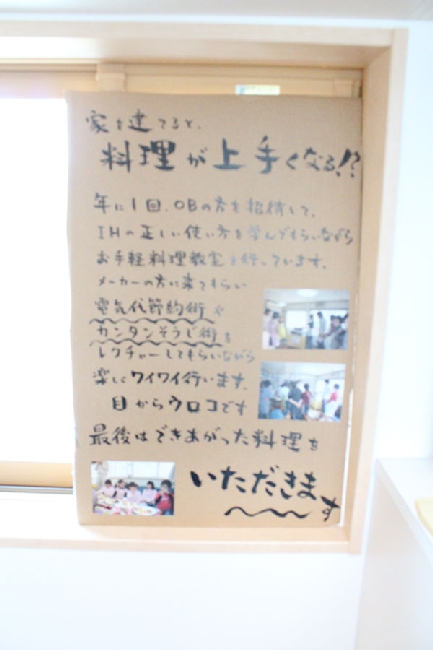 家を建てると、
料理が上手くなる!?
年に1回、OBの方を招待して、
IHの正しい使い方を学んでもらいながら
お手軽料理教室を行っています。
メーカーの方に来てもらい
電気代節約術や
カンタンそうじ術を
レクチャーしてもらいながら
楽しくワイワイ行います。
目からウロコです
最後はできあがった料理を
いただきます